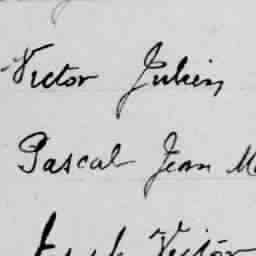 Victor Julien
Pascal Jean
Victor